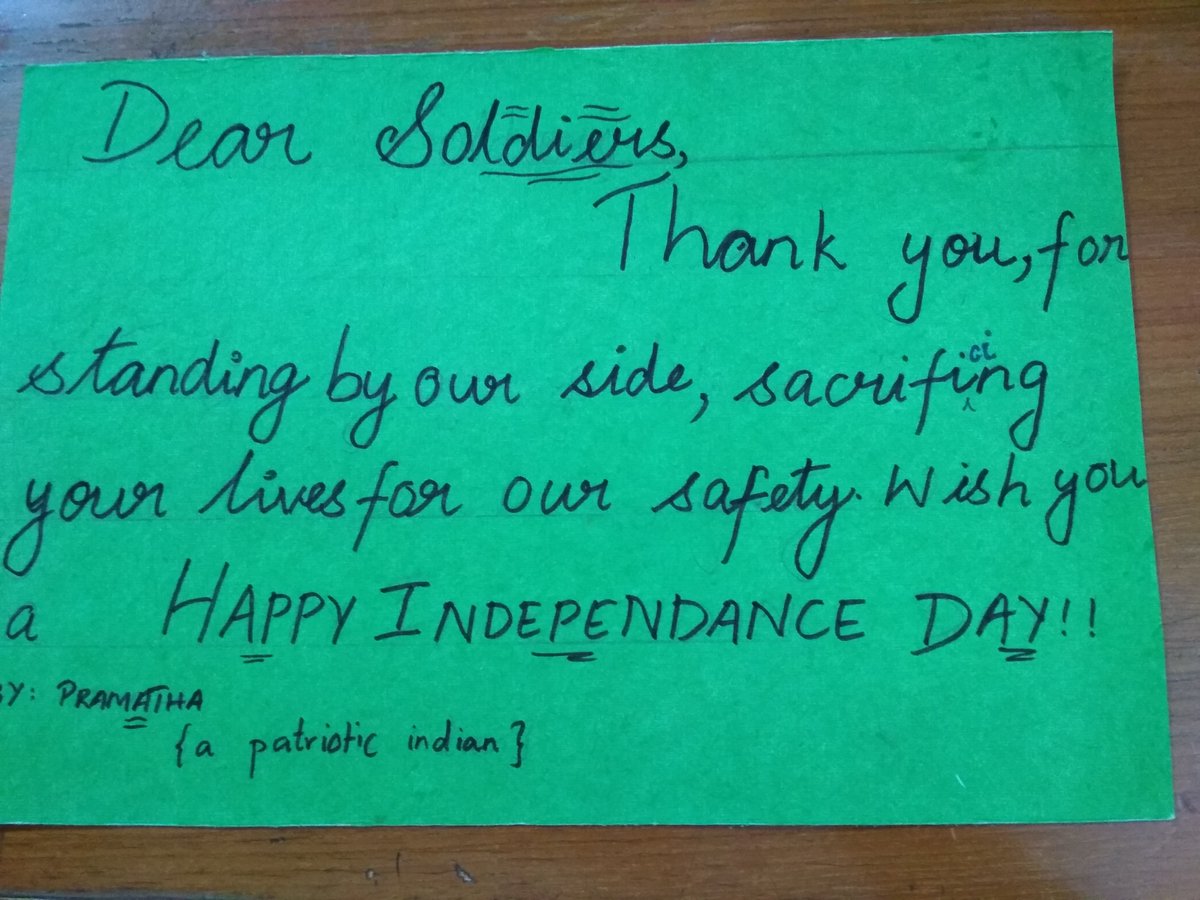 Dear Soldiers,
Thank you, for
standing by our side, sacrificing
your lives for our safety. Wish you
a HAPPY INDEPENDANCE DAY!!
BY: PRAMATHA
{a patriotic indian}